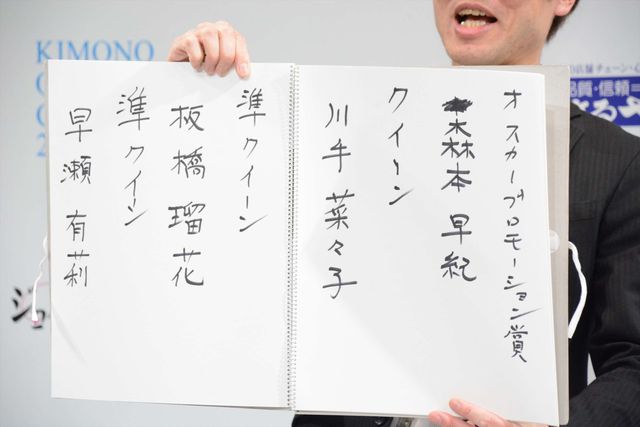 KIMONO
オスカープロモーション賞
森本 早紀
クイーン
川手 菜々子
準クイーン
板橋 瑠花
準クイーン
早瀬 有莉
店舗チェーン
質・信頼